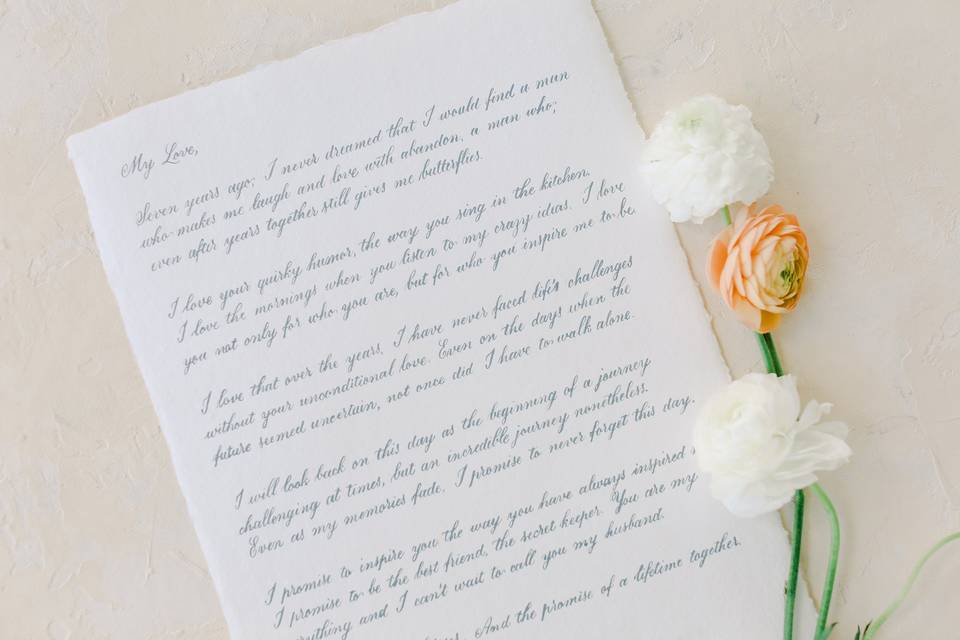 My Love,
Seven years ago; I never dreamed that I would find a man
who makes me laugh and love with abandon, a man who;
even after years together still gives me butterflies.
I love your quirky humor, the way you sing in the kitchen.
I love the mornings when you listen to my crazy ideas. I love
you not only for who you are, but for who you inspire me to be.
I love that over the years, I have never faced life's challenges
without your unconditional love. Even on the days when the
future seemed uncertain, not once did I have to walk alone.
I will look back on this day as the beginning of a journey
challenging at times, but an incredible journey nonetheless.
Even as my memories fade, I promise to never forget this day.
I promise to inspire you the way you have always inspired
I promise to be the best friend, the secret keeper. You are my
and I can't wait to call you my husband.
And the promise of a lifetime together.